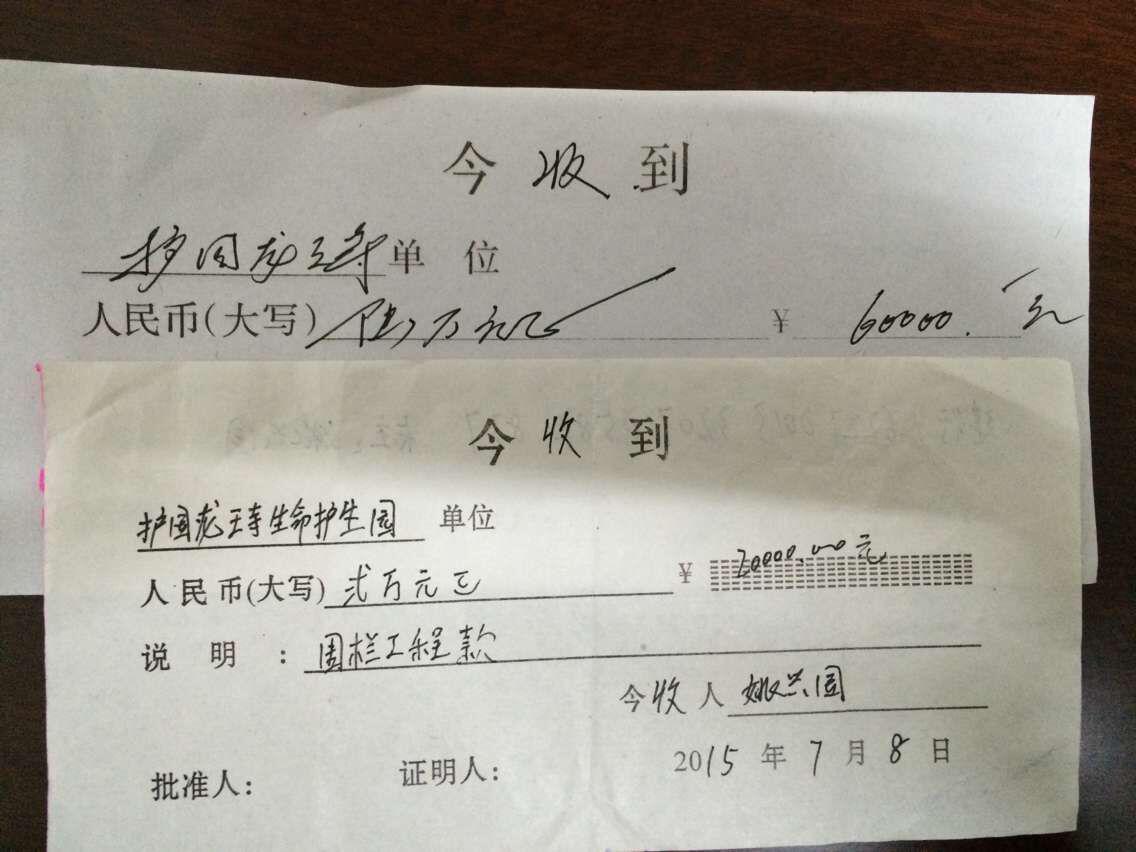 今收到
护国龙王寺单 位
人民币(大写) 陆万元正 ¥ 60000.元
今收到
护国龙王寺生命护生园 单位
人民币(大写) 贰万元正 ¥ 20000.00元
说 明 : 围栏工程款
今收人 姚兴国
2015 年 7 月 8 日
批准人: 证明人: